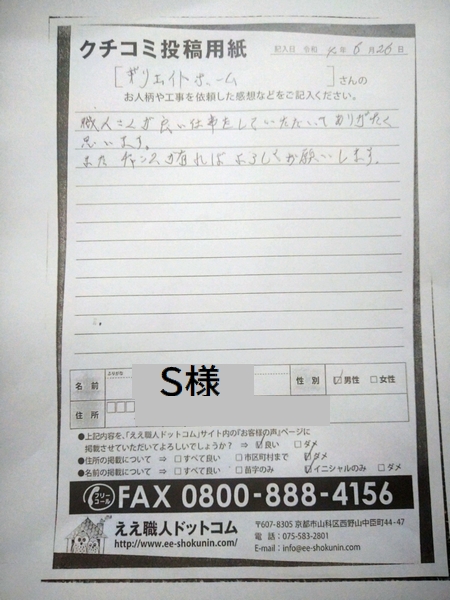 クチコミ投稿用紙
記入日 令和 4年 6月26日
[ギリエイトホーム ]さんの
お人柄や工事を依頼した感想などをご記入ください。
職人さんが良い仕事をしていただいてありがたく
思います。
またチャンスが有ればよろしくお願いします。
ふりがな
名前
S様
性別
☑男性 □女性
住所
●上記内容を、「ええ職人ドットコム」サイト内の「お客様の声」ページに
掲載させていただいてよろしいでしょうか? ⇒ ☑良い □ダメ
●住所の掲載について ⇒ □すべて良い □市区町村まで ☑ダメ
●名前の掲載について ⇒ □すべて良い □苗字のみ ☑イニシャルのみ □ダメ
フリーコール
FAX 0800-888-4156
ええ職人ドットコム
http://www.ee-shokunin.com/
〒607-8305 京都市山科区西野山中臣町44-47
電話:075-583-2801
E-mail:info@ee-shokunin.com